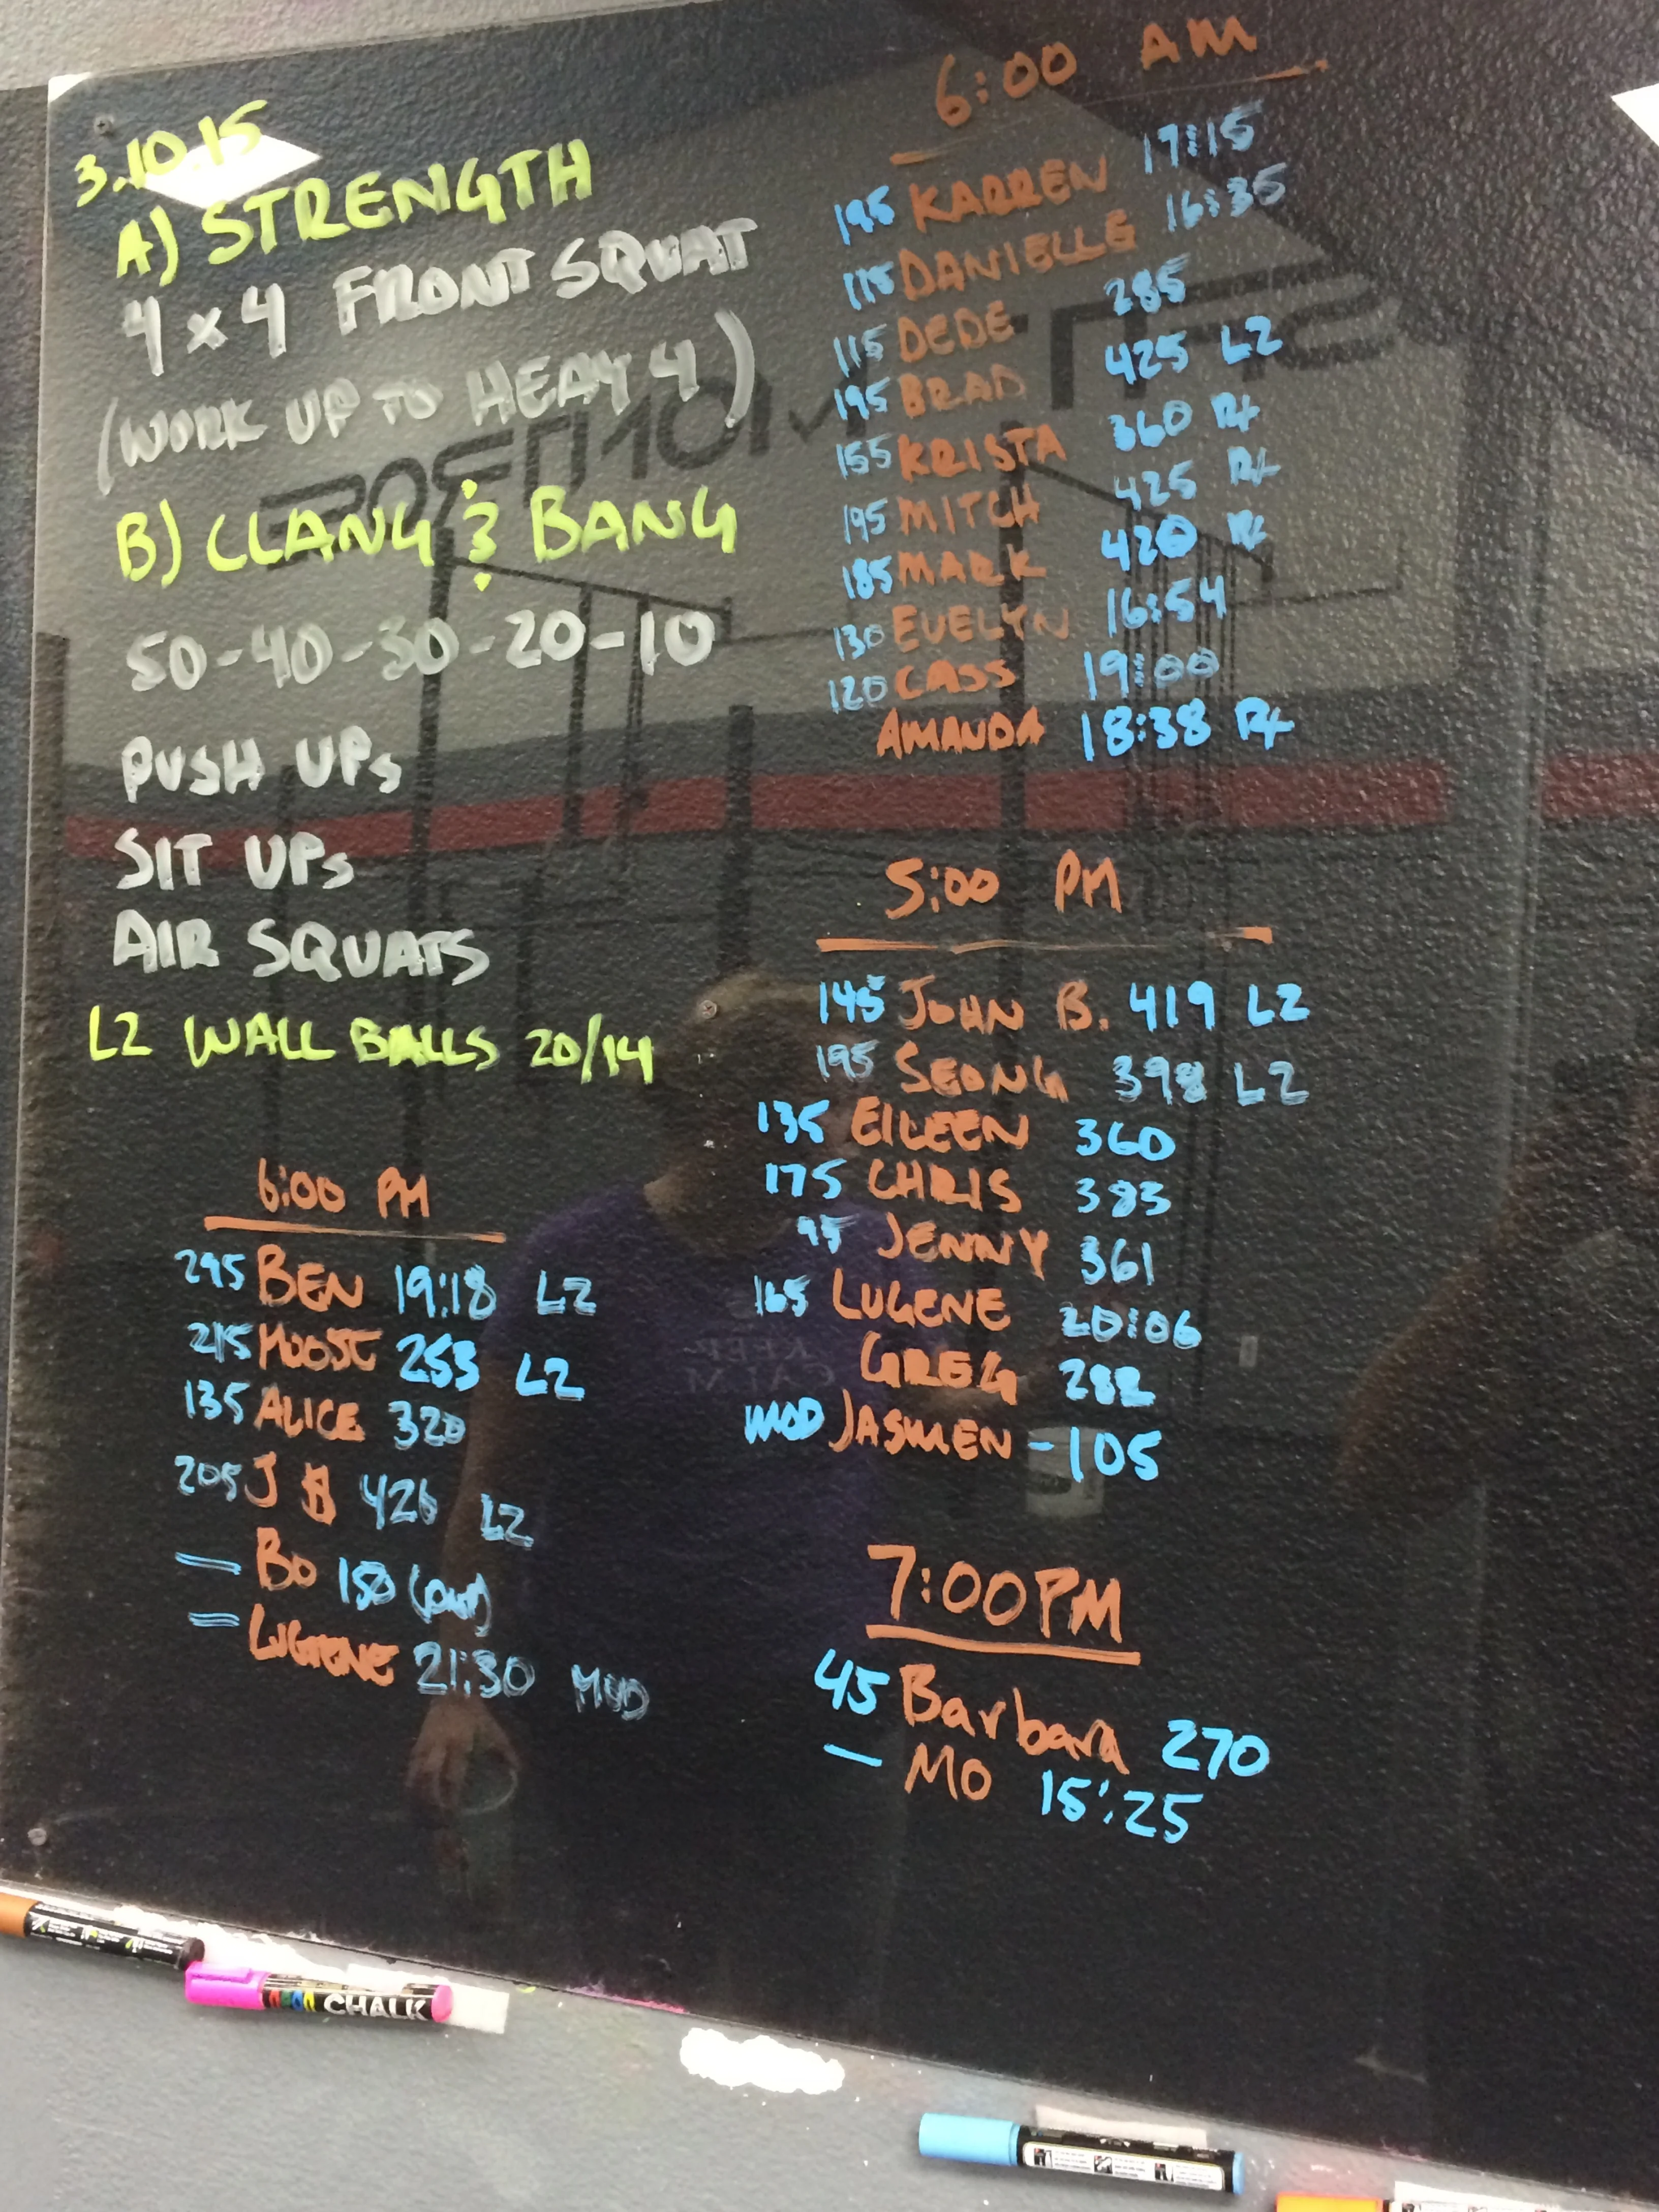 3.10.15
A) STRENGTH
4 x 4 FRONT SQUAT
(WORK UP TO HEAVY 4)
B) CLANG & BANG
50-40-30-20-10
PUSH UPs
SIT UPs
AIR SQUATS
L2 WALL BALLS 20/14
6:00 PM
295 BEN 19:18 L2
215 MOOSE 253 L2
135 ALICE 320
205 J B 426 L2
— BO 150
— LUGENE 21:30 MOD
6:00 AM
195 KARREN 17:15
115 DANIELLE 16:35
115 DEDE 285
195 BRAD 425 L2
155 KRISTA 360 RX
195 MITCH 425 RX
185 MARK 420 RX
130 EVELYN 16:54
120 CASS 19:00
AMANDA 18:38 RX
5:00 PM
145 JOHN B. 419 L2
195 SEONG 398 L2
135 EILEEN 360
175 CHRIS 383
95 JENNY 361
165 LUGENE 20:06
GREG 282
MOD JASMEN - 105
7:00 PM
45 Barbara 270
— MO 15:25
CHALK